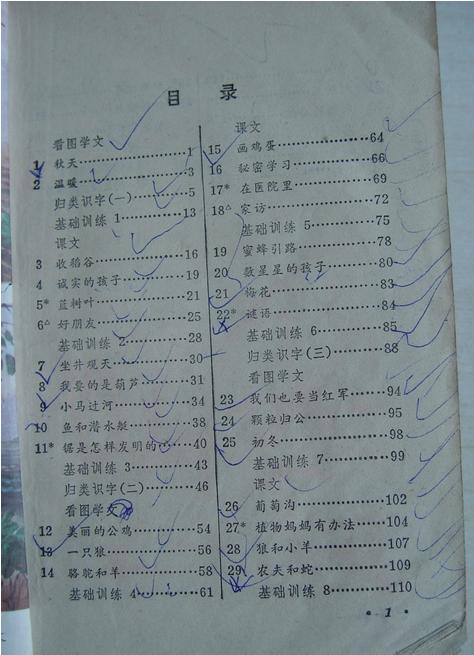 目 录
看图学文
1 秋天……1
2 温暖……3
归类识字(一)……5
基础训练 1……13
课文
3 收稻谷……16
4 诚实的孩子……19
5* 蓝树叶……21
6△ 好朋友……25
基础训练 2……28
7 坐井观天……30
8 我要的是葫芦……31
9 小马过河……34
10 鱼和潜水艇……38
11* 锯是怎样发明的……40
基础训练 3……43
归类识字(二)……46
看图学文
12 美丽的公鸡……54
13 一只狼……56
14 骆驼和羊……58
基础训练 4……61
课文
15 画鸡蛋……64
16 秘密学习……66
17* 在医院里……69
18△ 家访……72
基础训练 5……75
19 蜜蜂引路……78
20 数星星的孩子……80
21 梅花……83
22* 谜语……84
基础训练 6……85
归类识字(三)……88
看图学文
23 我们也要当红军……94
24 颗粒归公……95
25 初冬……98
基础训练 7……99
课文
26 葡萄沟……102
27* 植物妈妈有办法……104
28 狼和小羊……107
29 农夫和蛇……109
基础训练 8……110
• 1 •